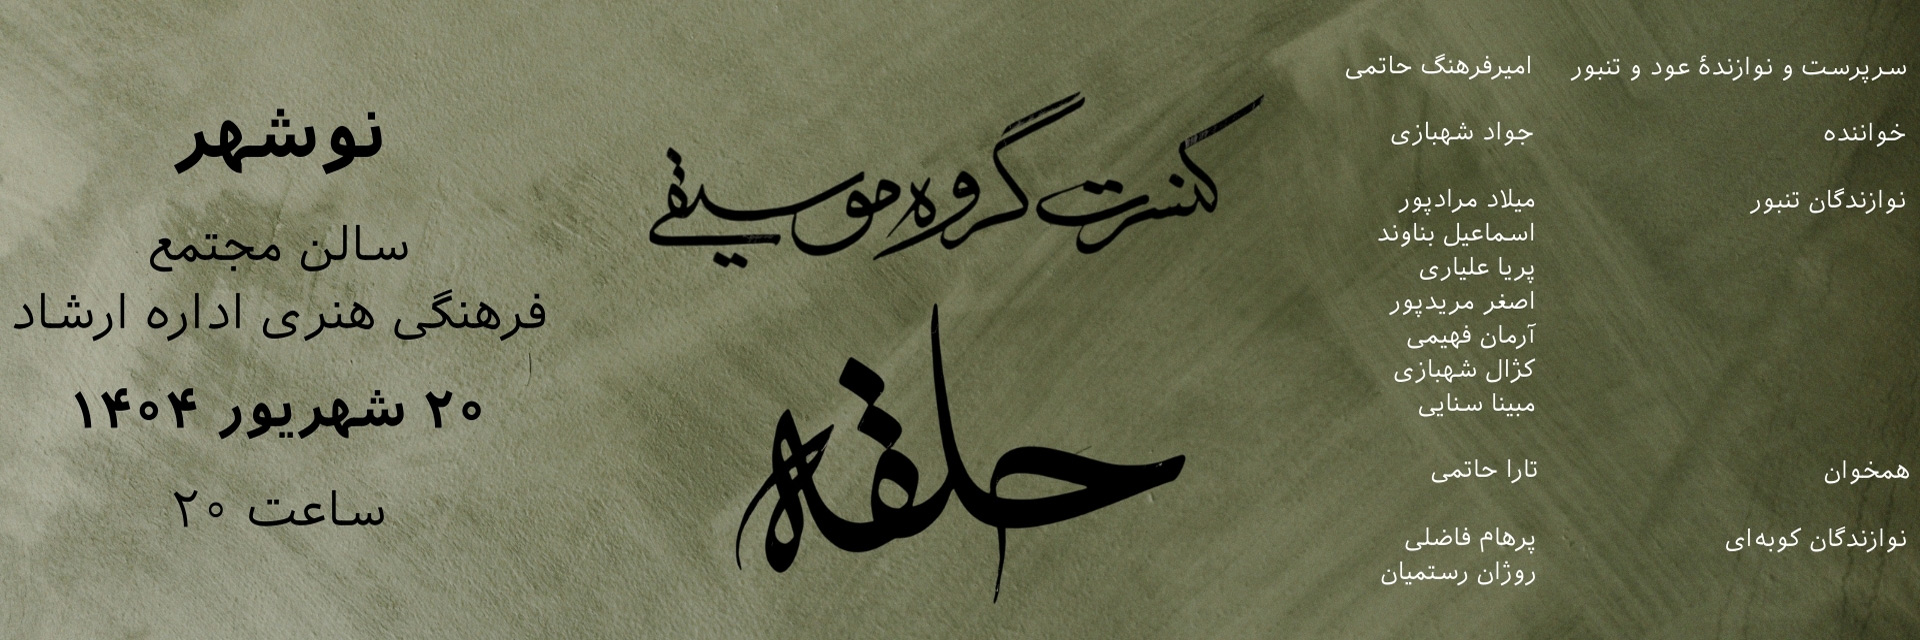 سرپرست و نوازندهٔ عود و تنبور امیرفرهنگ حاتمی
خواننده جواد شهبازی
نوازندگان تنبور میلاد مرادپور
اسماعیل بناوند
پریا علیاری
اصغر مریدپور
آرمان فهیمی
کژال شهبازی
مبینا سنایی
همخوان تارا حاتمی
نوازندگان کوبه‌ای پرهام فاضلی
روژان رستمیان
کنسرت گروه موسیقی
حلقه
نوشهر
سالن مجتمع
فرهنگی هنری اداره ارشاد
۲۰ شهریور ۱۴۰۴
ساعت ۲۰